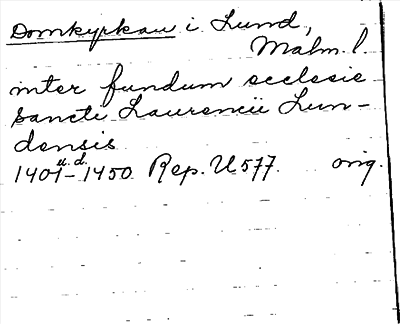 Domkyrkan i Lund,
Malm. l.
inter fundum ecclesie
sancti Laurencii Lun-
densis
u.d.
1401-1450 Rep. U 577. orig.